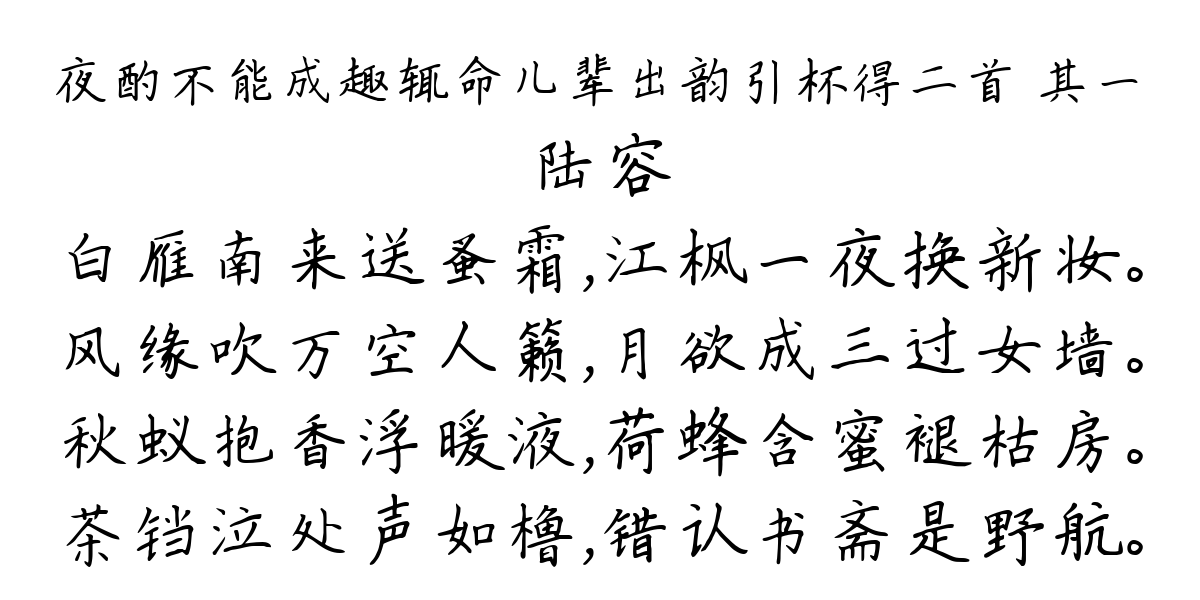 夜酌不能成趣辄命儿辈出韵引杯得二首 其一
陆容
白雁南来送蚤霜,江枫一夜换新妆。
风缘吹万空人籁,月欲成三过女墙。
秋蚁抱香浮暖液,荷蜂含蜜褪枯房。
茶铛泣处声如橹,错认书斋是野航。